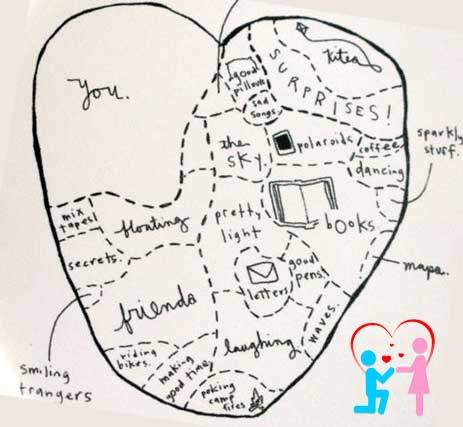 You.
good
pillows
sad
songs
SURPRISES!
kites
the
sky
polaroids
coffee
dancing
sparkly
stuff.
mix
tapes!
floating
pretty
light
books
secrets.
good
pens
letters
maps.
friends
waves
laughing
smiling
trangers
riding
bikes.
making
good time
poking
camp
fires